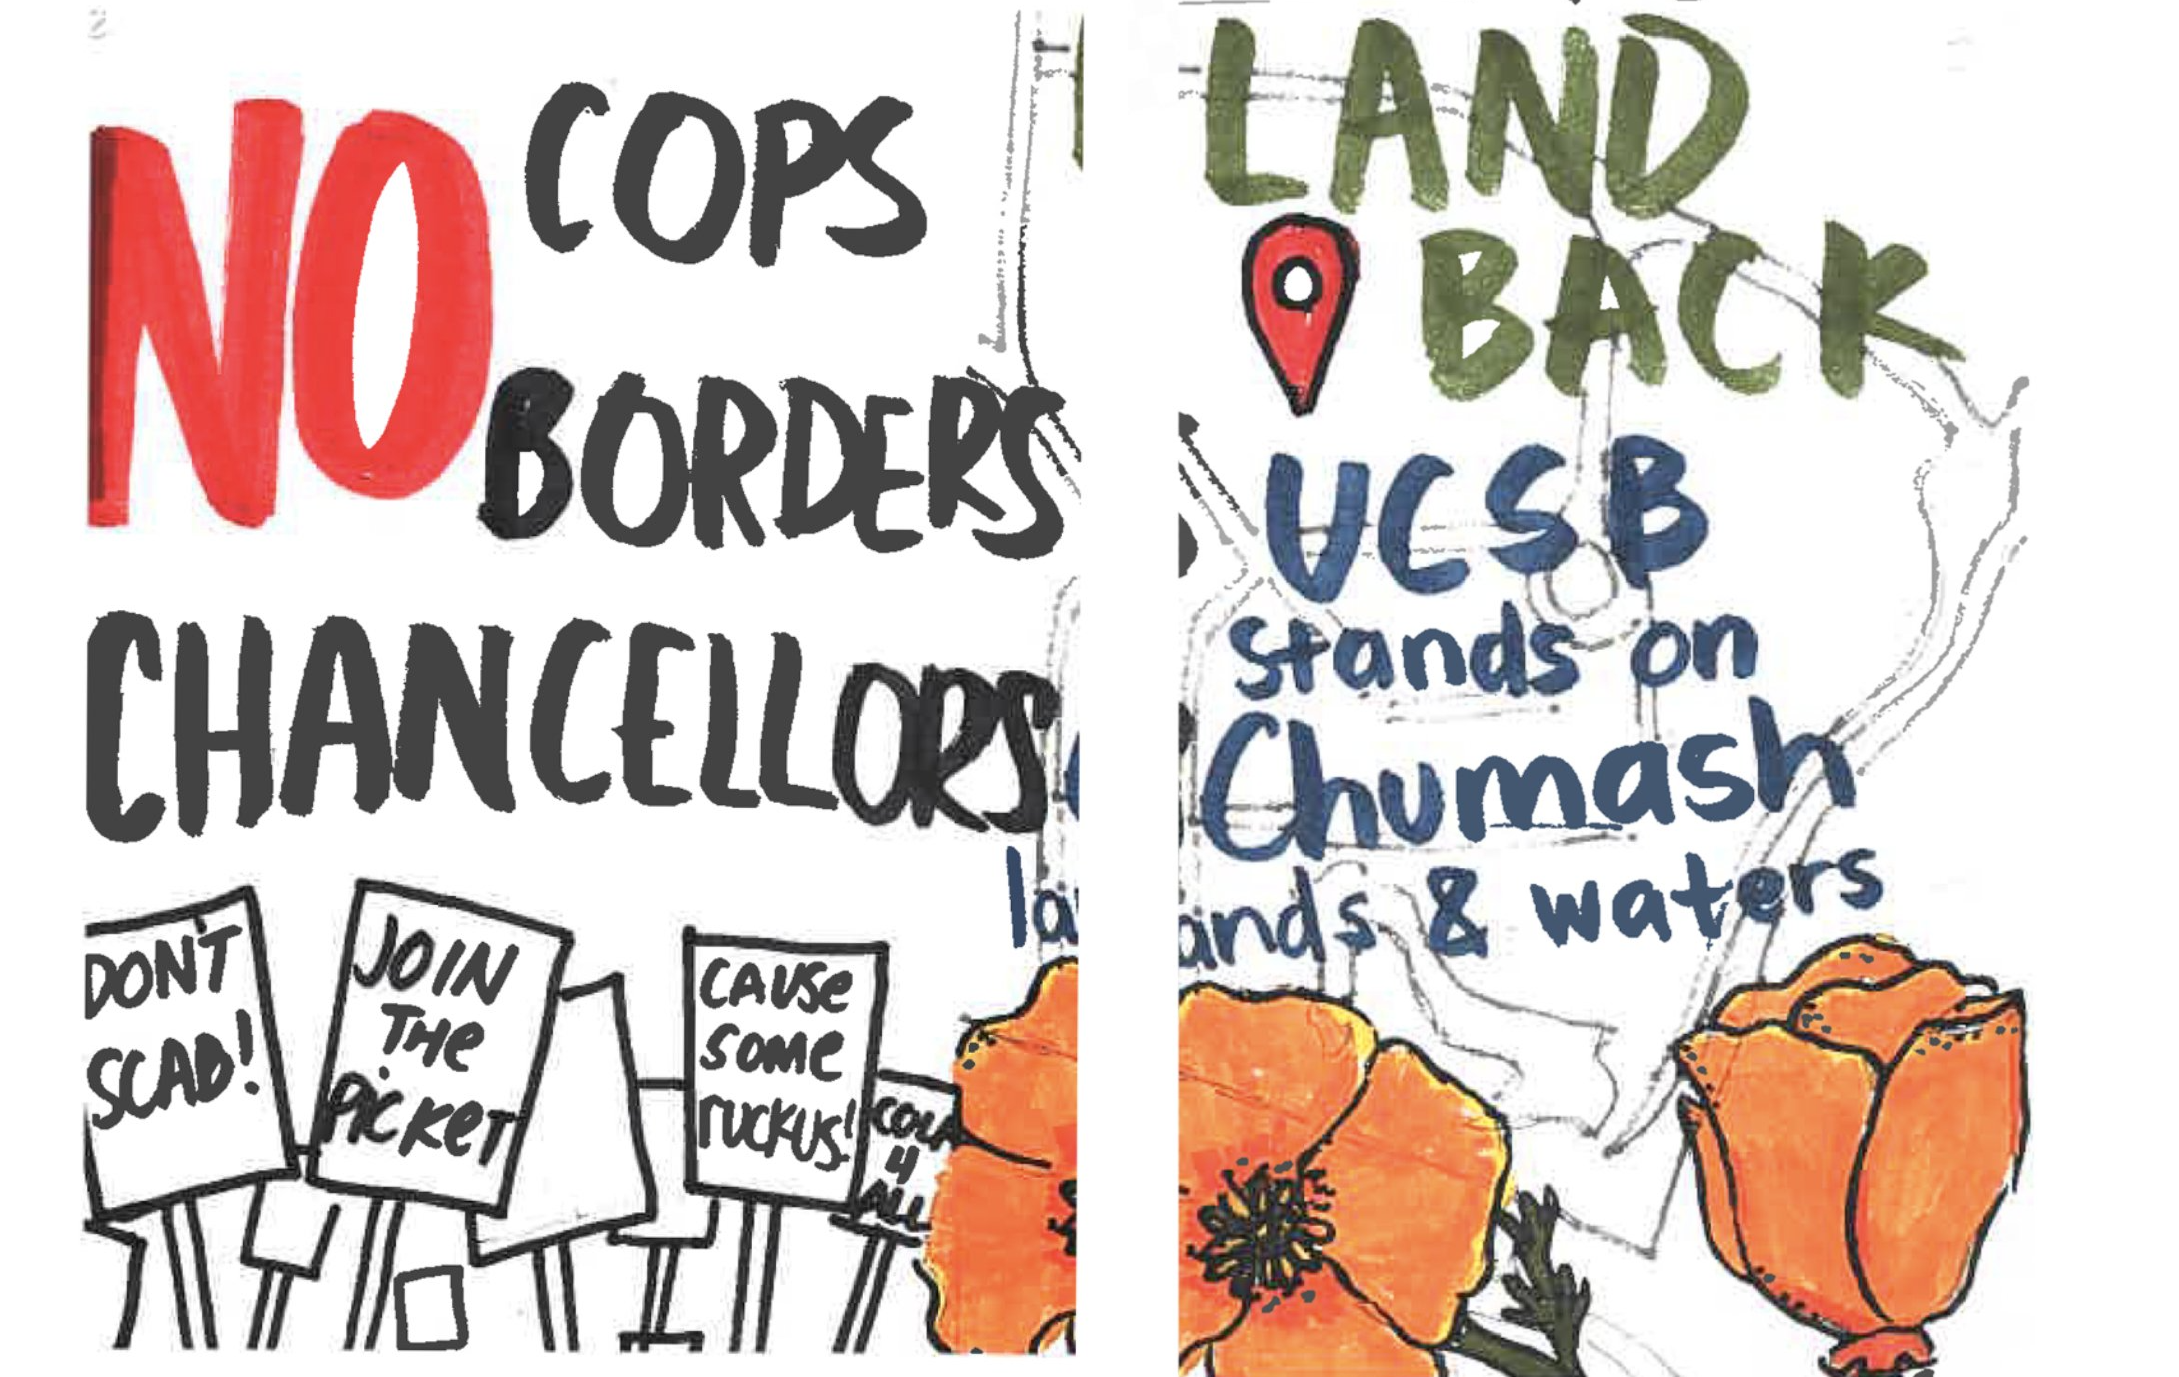 NO COPS
BORDERS
CHANCELLORS
DON'T
SCAB!
JOIN
THE
PICKET
CAUSE
SOME
RUCKUS!
COLA
4
ALL
la
LAND
BACK
UCSB
stands on
Chumash
ands & waters